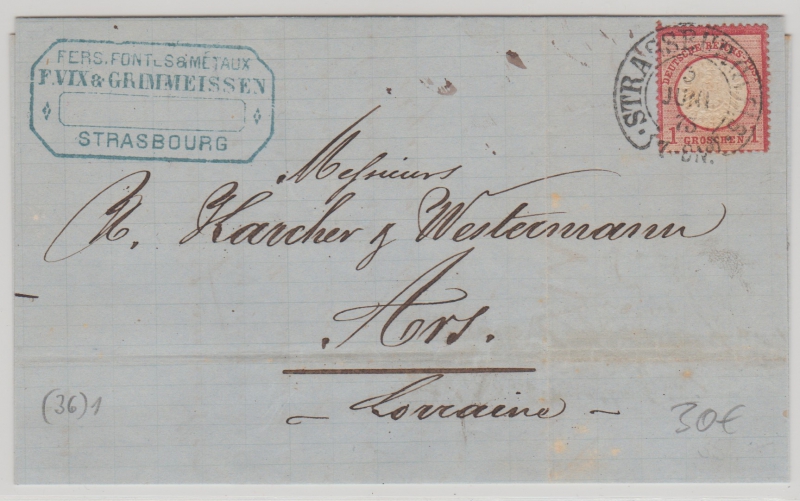 FERS, FONTES & MÉTAUX
F. VIX & GRIMMEISSEN
STRASBOURG
STRASSBURG
3
JUNI
73
DEUTSCHE REICHS-POST
1 GROSCHEN 1
Messieurs
R. Karcher & Westermann
Ars.
Lorraine
(36) 1
30€